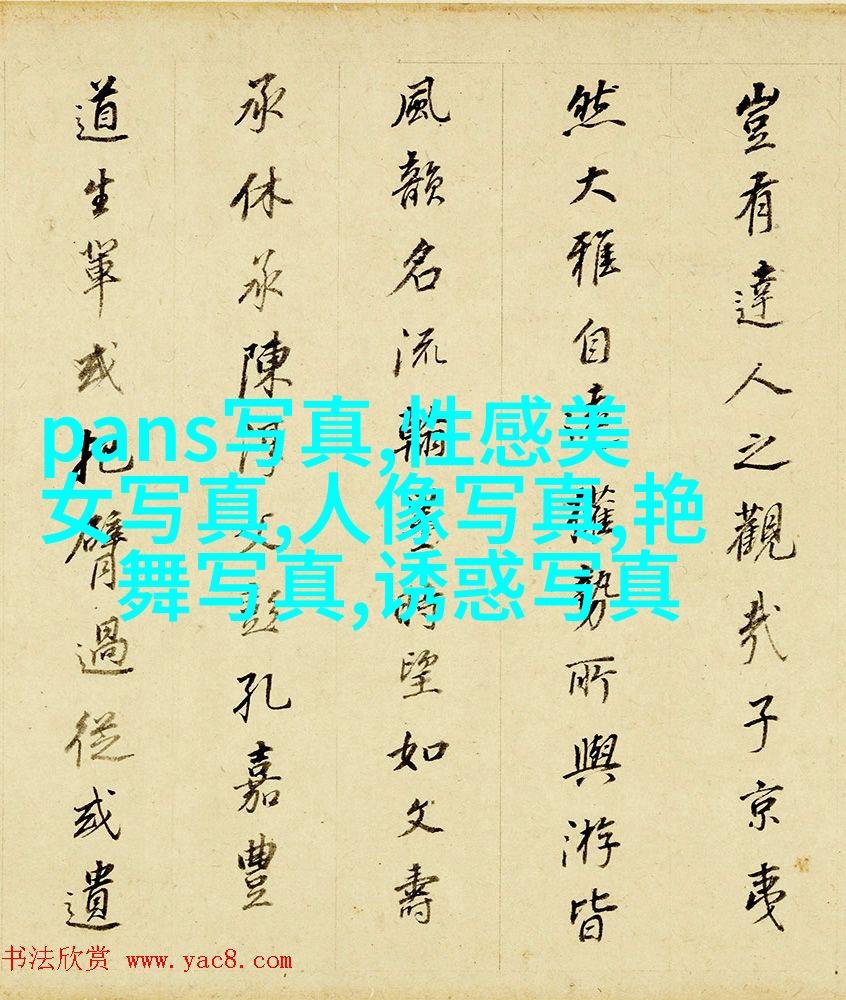 豈有達人之觀哉子京夷
然大雅自權勢所與游皆
風韻名流翰墨時望如文壽
承休承陳文彭孔嘉豐
道生輩或把臂過從或遺
pans写真,性感美
女写真,人像写真,艳
舞写真,诱惑写真
书法欣赏 www.yac8.com